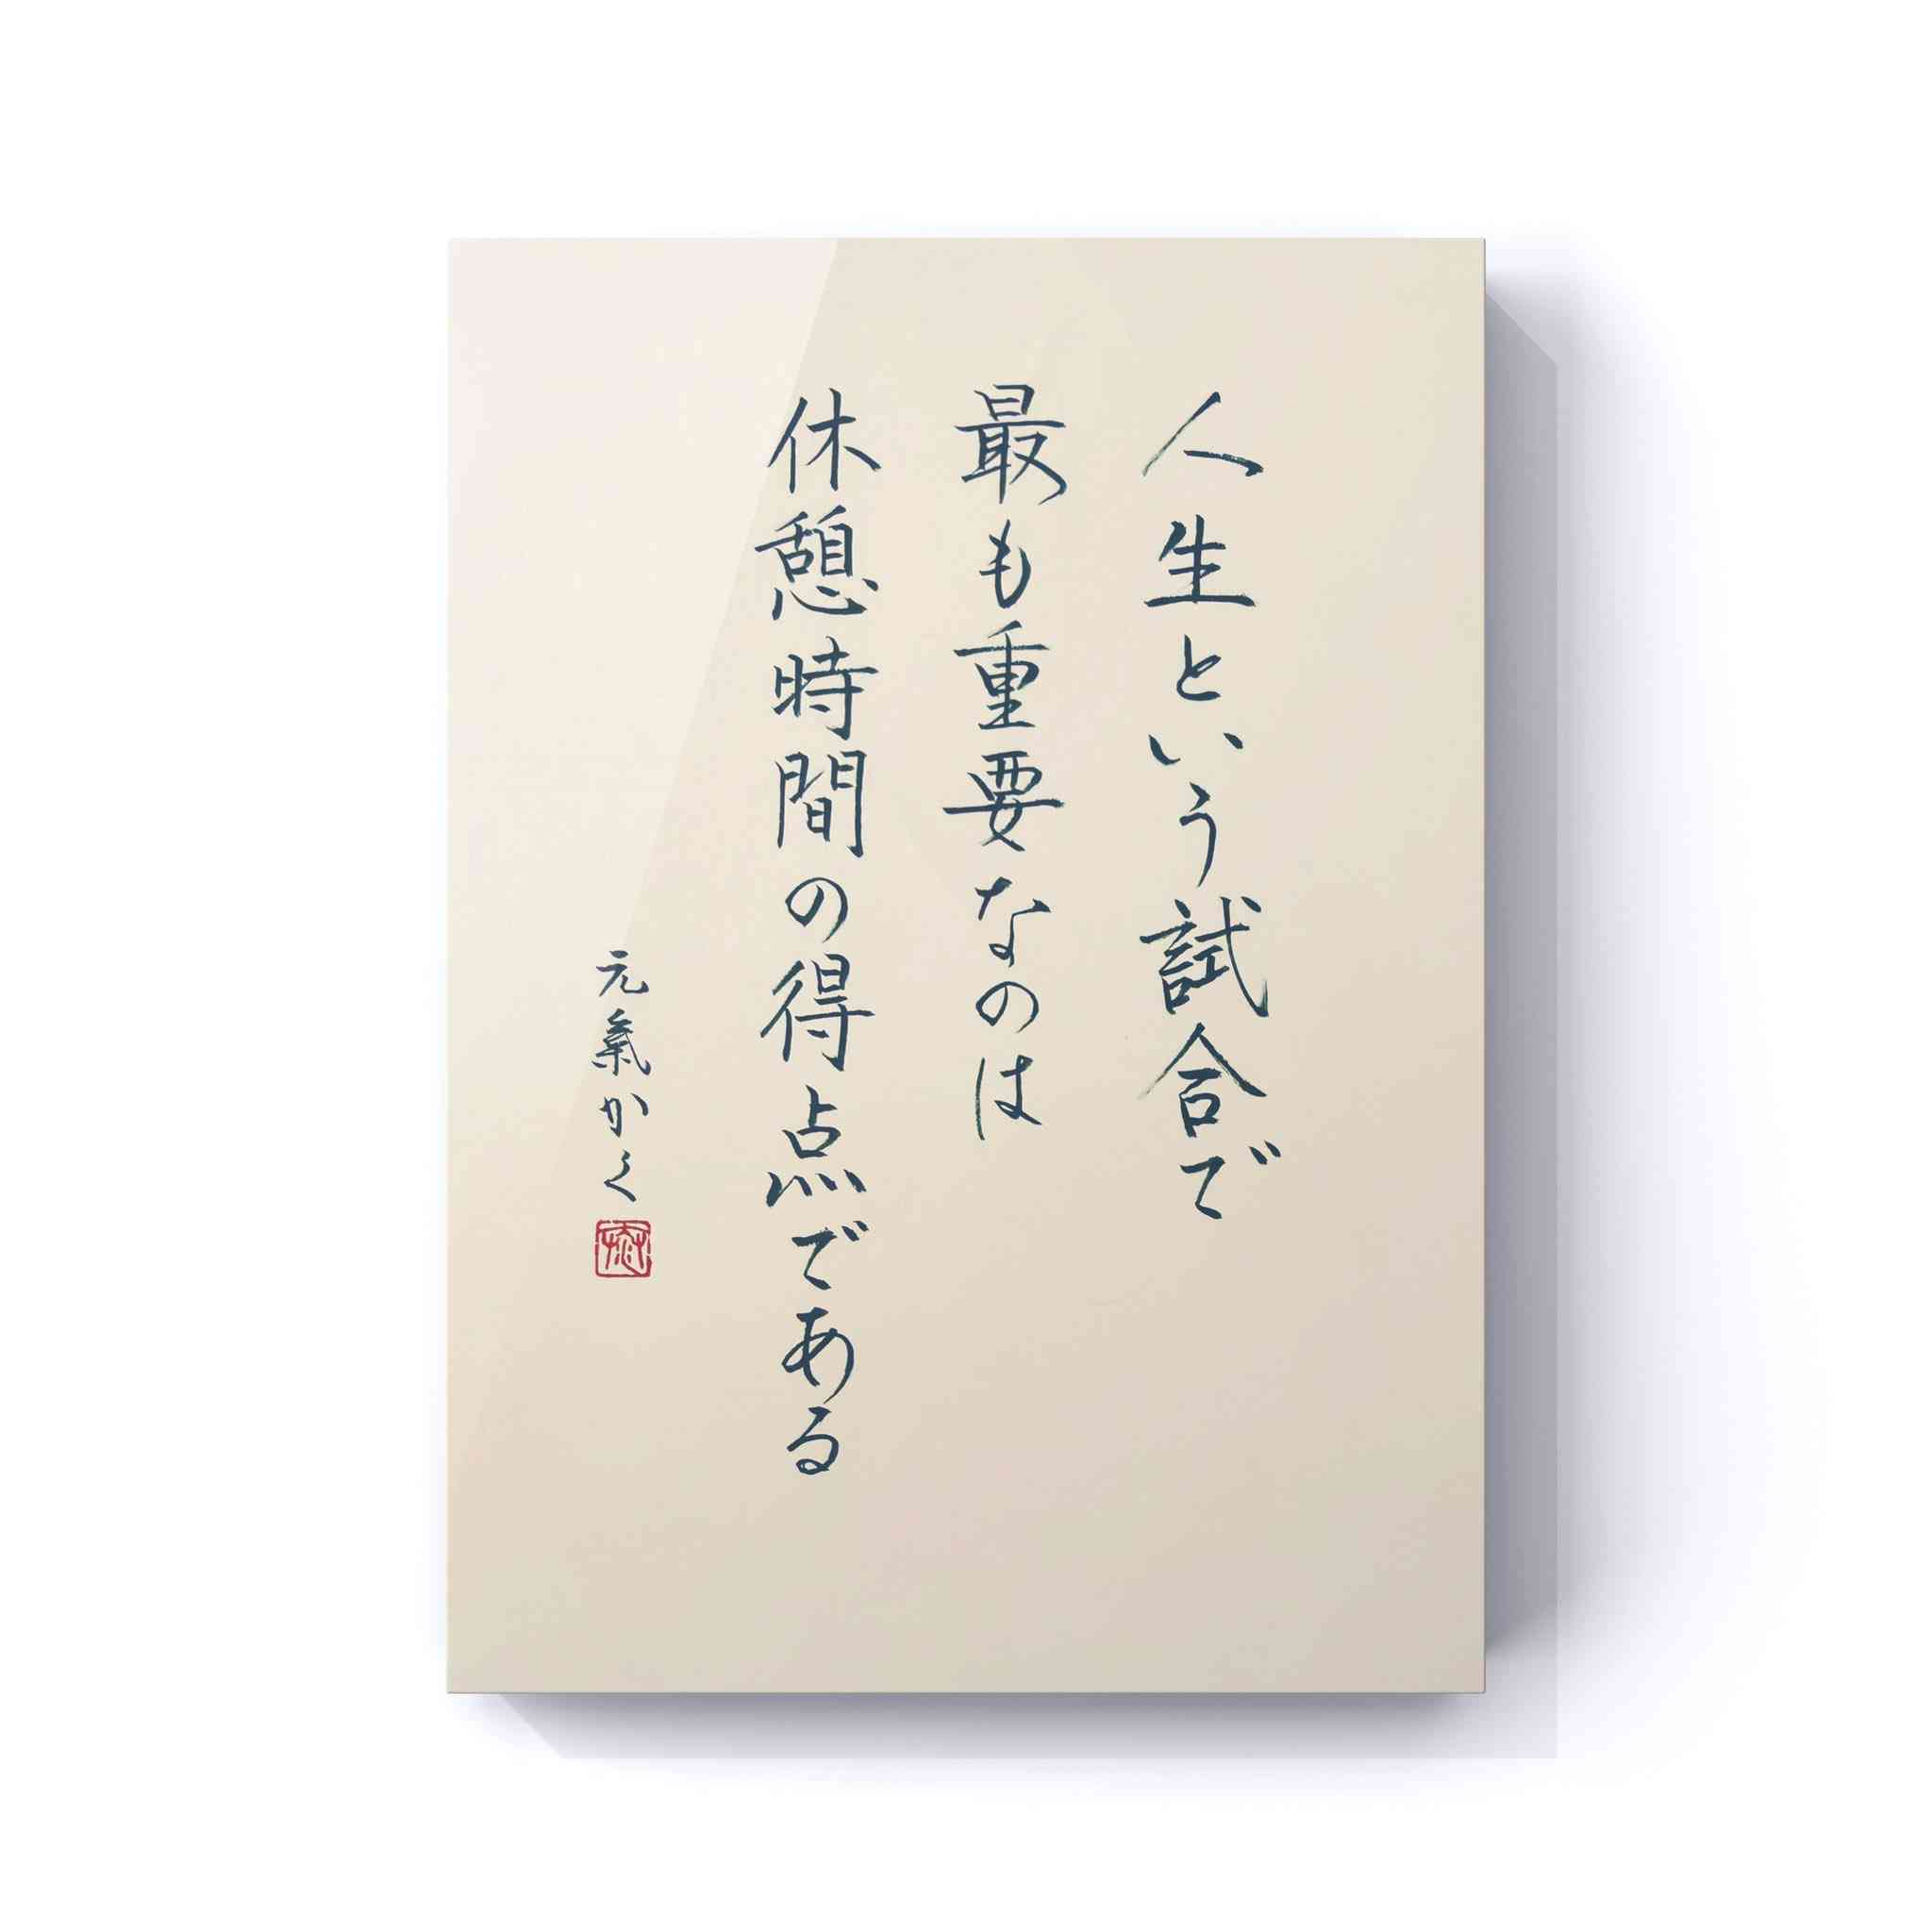 人生という試合で
最も重要なのは
休憩時間の得点である
元氣かく